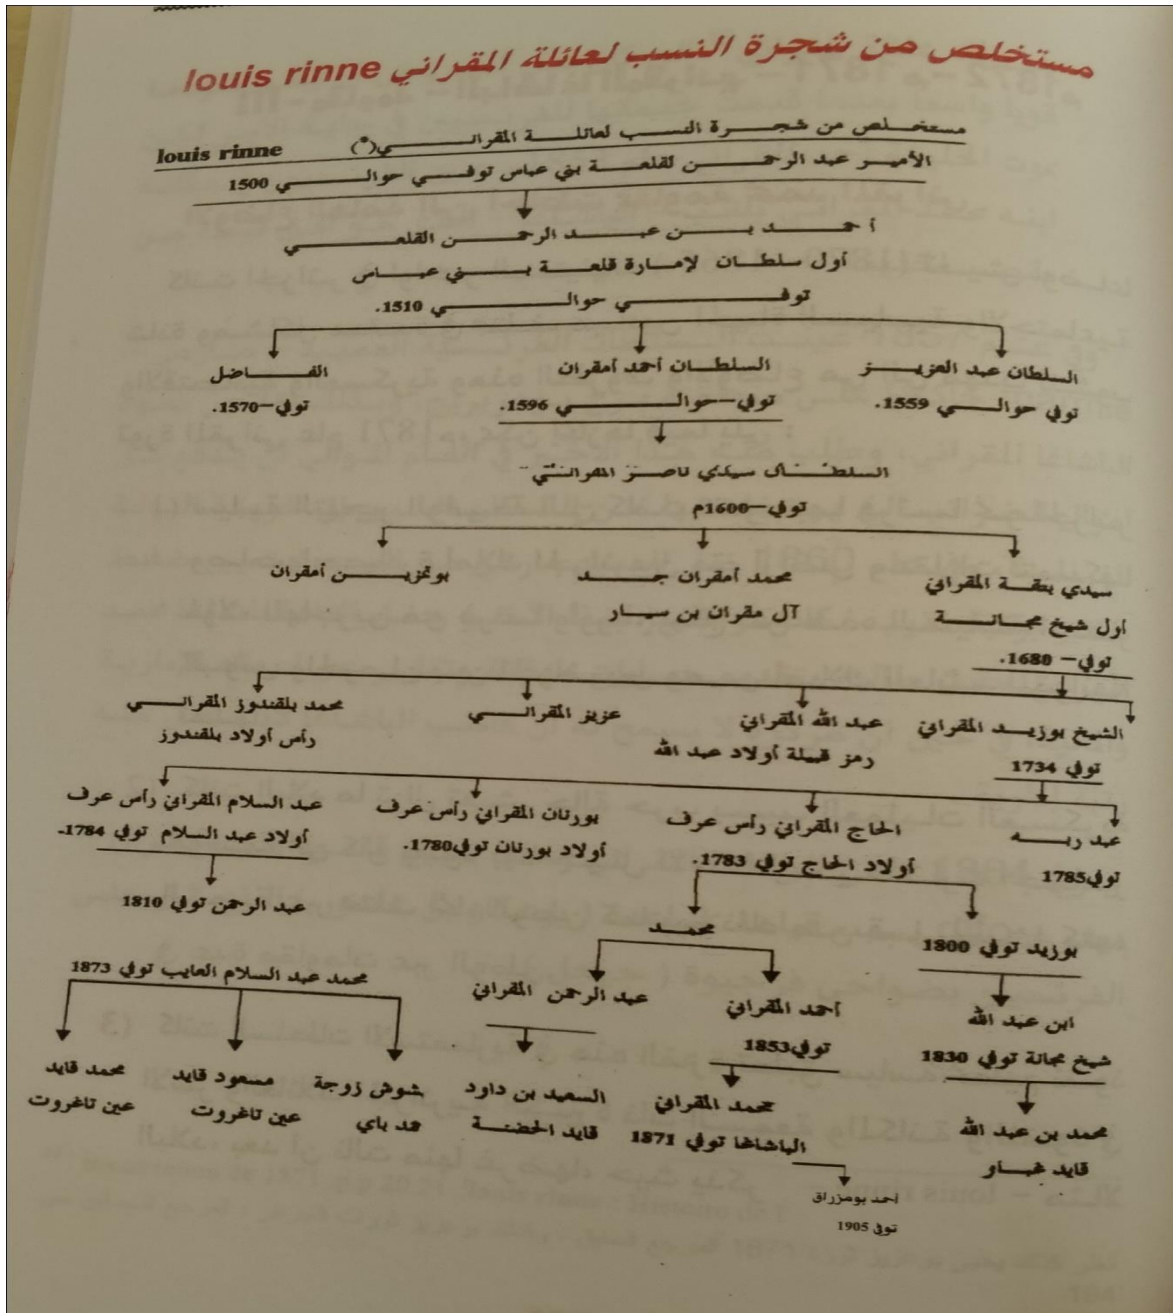 مستخلص من شجرة النسب لعائلة المقراني louis rinne
مستخلص من شجرة النسب لعائلة المقراني(*) louis rinne
الأمير عبد الرحمن لقلعة بني عباس توفي حوالي 1500
أحمد بن عبد الرحمن القلعي
أول سلطان لإمارة قلعة بني عباس
توفي حوالي 1510.
السلطان عبد العزيز
توفي حوالي 1559.
السلطان أحمد أمقران
توفي-حوالي 1596.
الفاضل
توفي-1570.
السلطان سيدي ناصر المقراني-
توفي-1600م
سيدي بتقة المقراني
أول شيخ مجانة
توفي- 1680.
محمد أمقران جد
آل مقران بن سيار
بوتمزين أمقران
الشيخ بوزيد المقراني
توفي 1734
عبد الله المقراني
رمز قبيلة أولاد عبد الله
عزيز المقراني
محمد بلقندوز المقراني
رأس أولاد بلقندوز
عبد ربه
توفي 1785
الحاج المقراني رأس عرف
أولاد الحاج توفي 1783.
بورنان المقراني رأس عرف
أولاد بورنان توفي1780.
عبد السلام المقراني رأس عرف
أولاد عبد السلام توفي 1784.
عبد الرحمن توفي 1810
بوزيد توفي 1800
محمد
ابن عبد الله
شيخ مجانة توفي 1830
أحمد المقراني
توفي1853
عبد الرحمن المقراني
محمد عبد السلام العايب توفي 1873
محمد بن عبد الله
قايد
محمد المقراني
الباشاغا توفي 1871
السعيد بن داود
قايد الحضنة
شوش زوجة
حمد باي
مسعود قايد
عين تاغروت
محمد قايد
عين تاغروت
أحمد بومزراق
توفي 1905